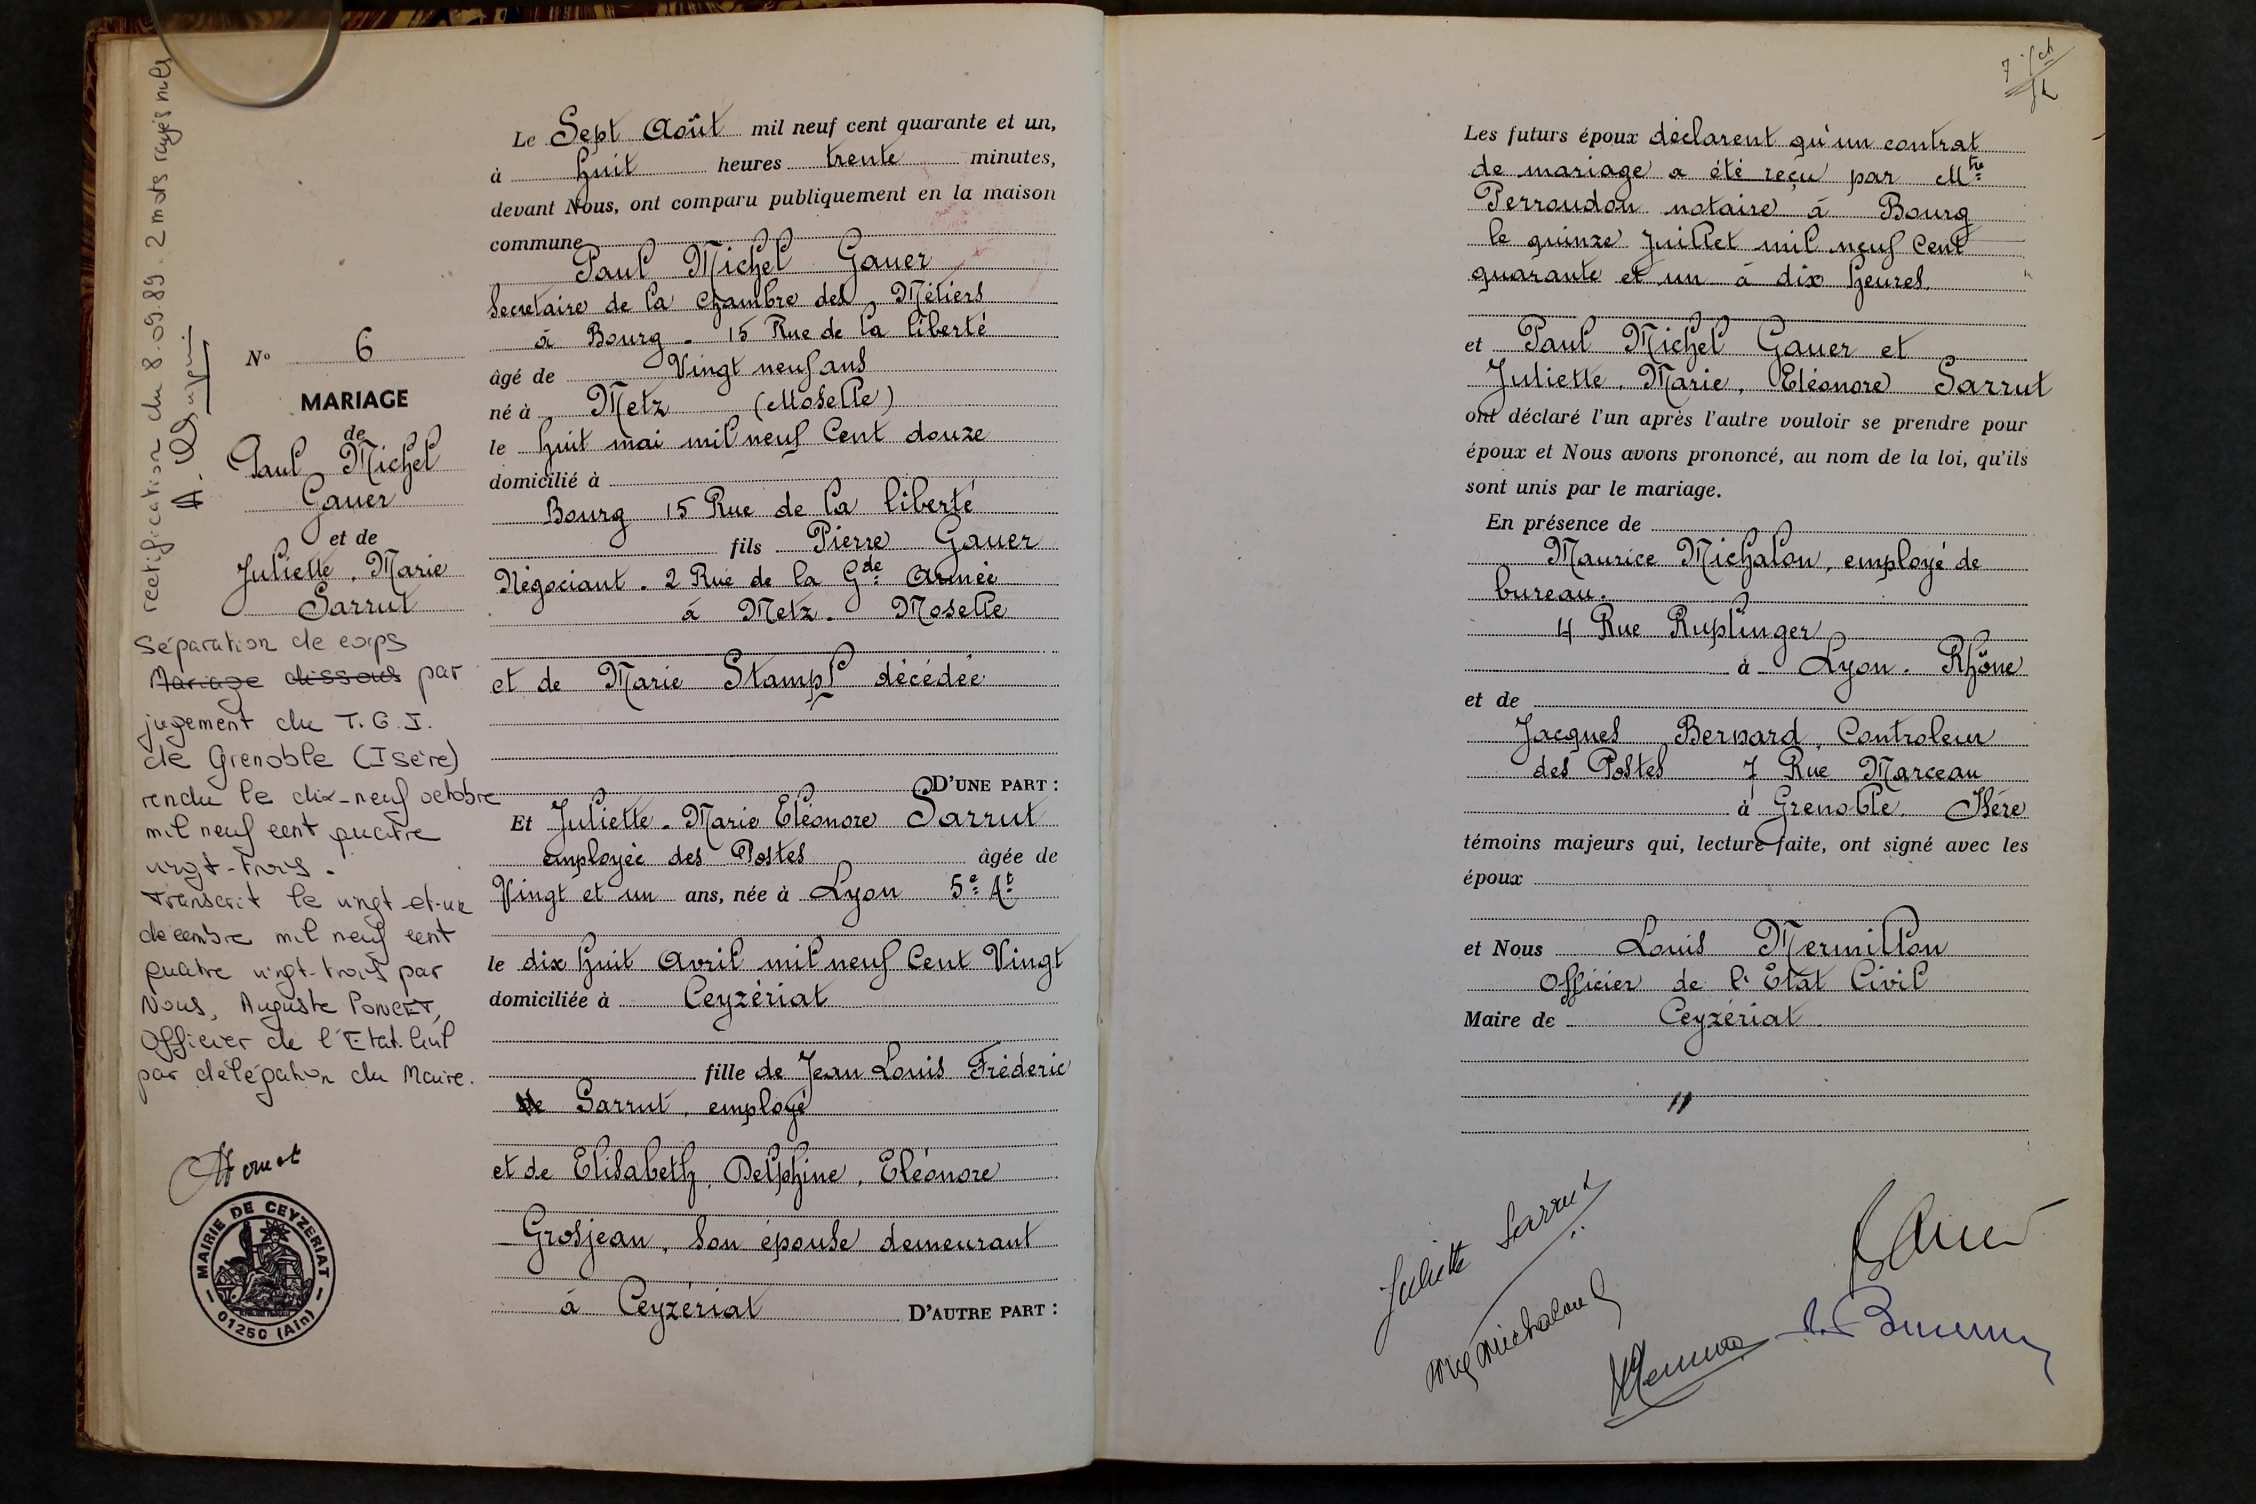 rectification du 8.09.89. 2 mots rayés nuls
N° 6
MARIAGE
de
Paul Michel
Gauer
et de
Juliette, Marie
Sarrut
Séparation de corps
Mariage dissous par
jugement du T.G.I.
de Grenoble (Isère)
rendu le dix-neuf octobre
mil neuf cent quatre
vingt-trois.
Transcrit le vingt-et-un
décembre mil neuf cent
quatre vingt-trois par
Nous, Auguste PONCET,
Officier de l'Etat Civil
par délégation du Maire.
MAIRIE DE CEYZERIAT
01250 (Ain)
Le Sept Août mil neuf cent quarante et un,
à huit heures trente minutes,
devant Nous, ont comparu publiquement en la maison
commune
Paul Michel Gauer
Secretaire de la Chambre des Métiers
à Bourg - 15 Rue de la liberté
âgé de Vingt neuf ans
né à Metz (Moselle)
le huit mai mil neuf Cent douze
domicilié à
Bourg 15 Rue de la liberté
fils Pierre Gauer
Négociant - 2 Rue de la Gde Armée
à Metz - Moselle
et de Marie Stampf décédée
D'UNE PART :
Et Juliette - Marie Eléonore Sarrut
employée des Postes âgée de
Vingt et un ans, née à Lyon 5e At
le dix huit Avril mil neuf Cent Vingt
domiciliée à Ceyzériat
fille de Jean Louis Fréderic
Sarrut, employé
et de Elisabeth, Delphine, Eléonore
Grosjean, son épouse demeurant
à Ceyzériat D'AUTRE PART :
Les futurs époux déclarent qu'un contrat
de mariage a été reçu par Mtre
Perroudon notaire à Bourg
le quinze Juillet mil neuf Cent
quarante et un à dix heures.
et Paul Michel Gauer et
Juliette, Marie, Eléonore Sarrut
ont déclaré l'un après l'autre vouloir se prendre pour
époux et Nous avons prononcé, au nom de la loi, qu'ils
sont unis par le mariage.
En présence de
Maurice Michalon, employé de
bureau.
4 Rue Ruplinger
à Lyon - Rhône
et de
Jacques Bernard, Controleur
des Postes 7 Rue Marceau
à Grenoble. Isére
témoins majeurs qui, lecture faite, ont signé avec les
époux
et Nous Louis Mermillon
Officier de l'Etat Civil
Maire de Ceyzériat
Juliette Sarrut
Gauer
Michalon